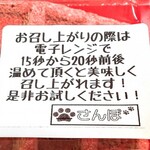 お召し上がりの際は
電子レンジで
15秒から20秒前後
温めて頂くと美味しく
召し上がれます！
是非お試しください！
さんぽ